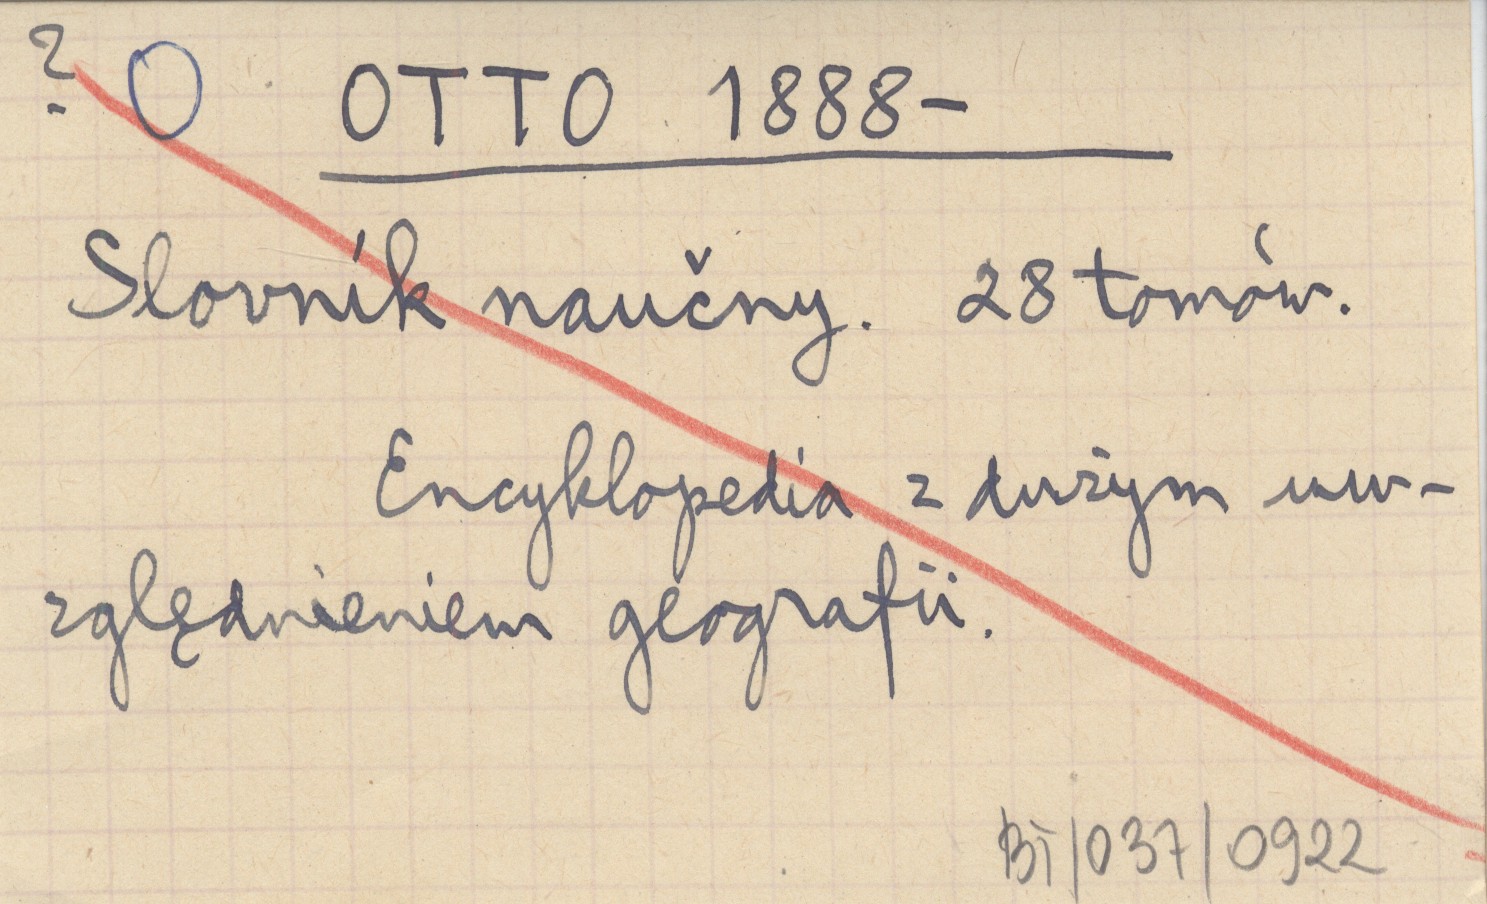 ? O OTTO 1888-
Slovník naučny. 28 tomów.
Encyklopedia z dużym uw-
zględnieniem geografii.
BI/037/0922